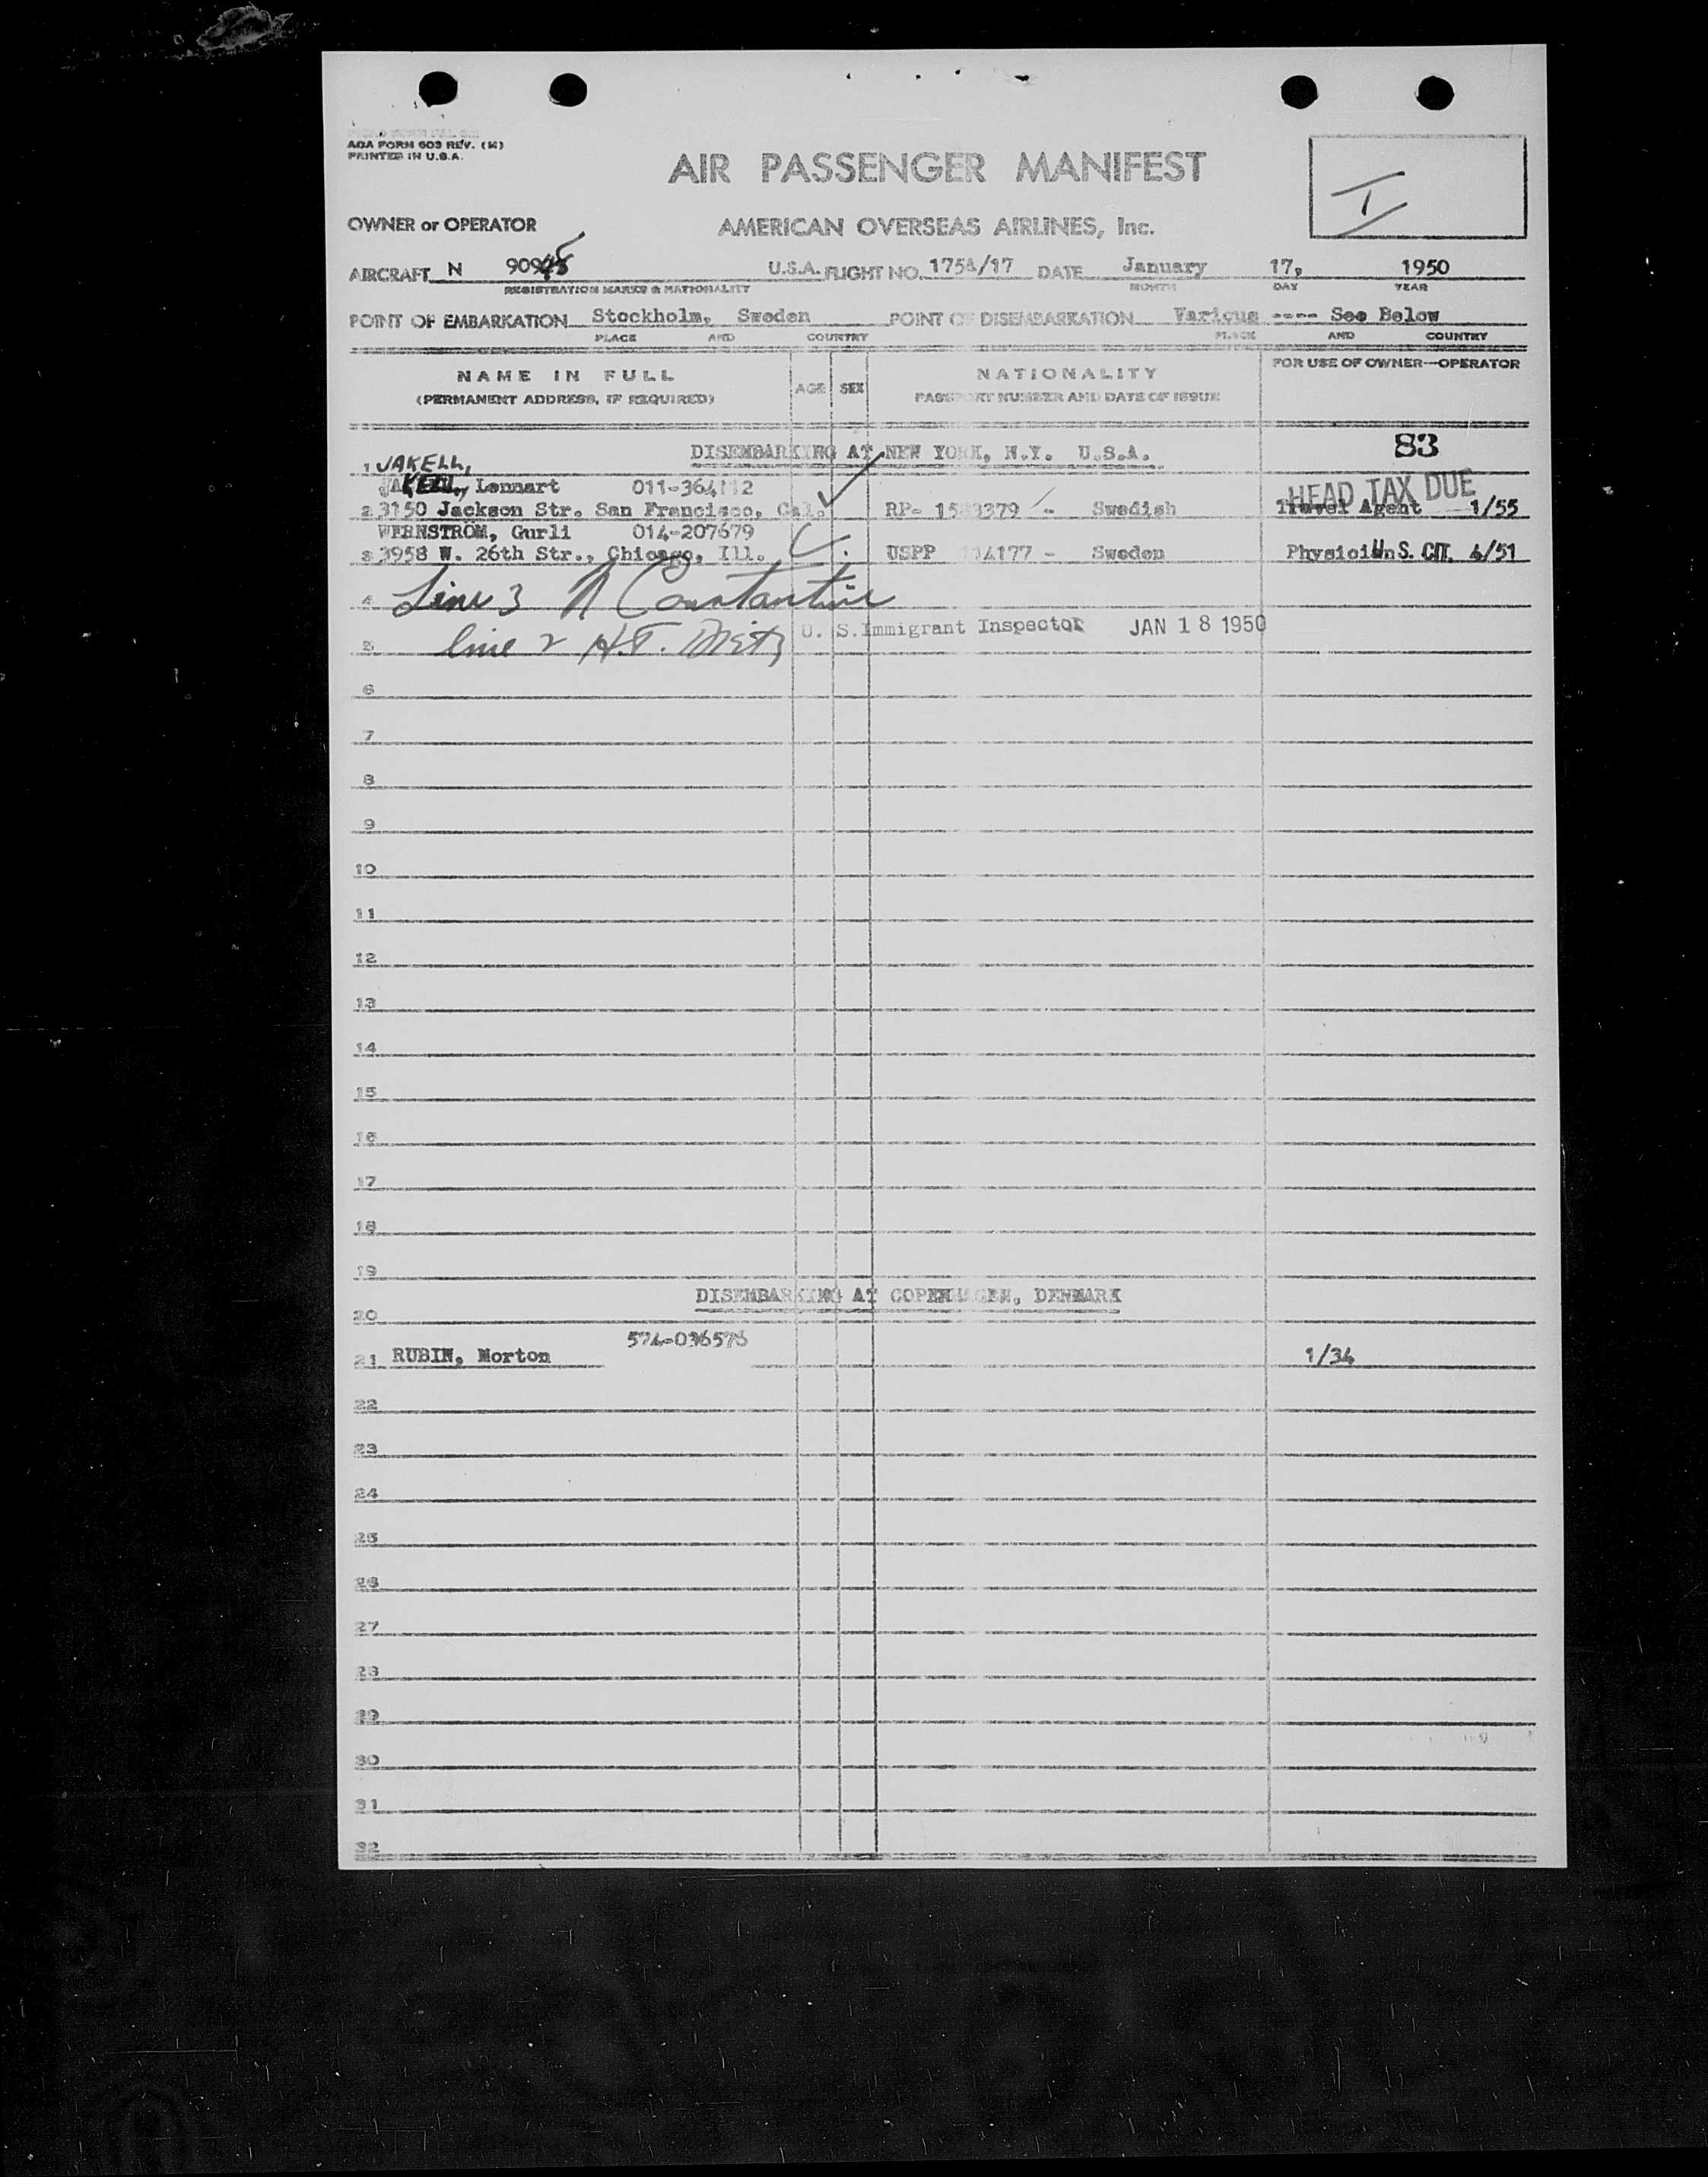 AOA FORM 603 REV. (M)
PRINTED IN U.S.A.
AIR PASSENGER MANIFEST
I
OWNER or OPERATOR AMERICAN OVERSEAS AIRLINES, Inc.
AIRCRAFT N 90945 U.S.A. FLIGHT NO. DATE January 17, 1950
REGISTRATION MARKS & NATIONALITY MONTH DAY YEAR
POINT OF EMBARKATION Stockholm, Sweden POINT OF DISEMBARKATION Various ---- See Below
PLACE AND COUNTRY PLACE AND COUNTRY
NAME IN FULL
(PERMANENT ADDRESS, IF REQUIRED)
AGE SEX
NATIONALITY
PASSPORT NUMBER AND DATE OF ISSUE
FOR USE OF OWNER—OPERATOR
DISEMBARKING AT NEW YORK, N.Y. U.S.A. 83
1 JAKELL,
JAKELL, Lennart HEAD TAX DUE
2 3150 Jackson Str. San Francisco, Cal. RP- Swedish Travel Agent 1/55
WERNSTROM, Gurli 014-207679
3 3958 W. 26th Str., Chicago, Ill. USPP Sweden Physician U.S. CIT. 4/51
4 Line 3 N Constantine
U. S. Immigrant Inspector JAN 18 1950
5 line 2 H.T.
6
7
8
9
10
11
12
13
14
15
16
17
18
19
DISEMBARKING AT COPENHAGEN, DENMARK
20
574-036576
21 RUBIN, Morton 1/34
22
23
24
25
26
27
28
29
30
31
32